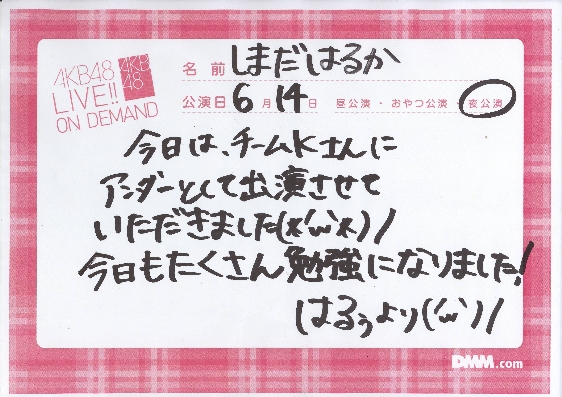 AKB48
LIVE!!
ON DEMAND
AKB
48
名前 しまだはるか
公演日 6月14日 昼公演・おやつ公演・夜公演
今日は、チームKさんに
アンダーとして出演させて
いただきました(*'ω'*)ﾉ
今日もたくさん勉強になりました!
はるぅより('ω')ﾉ
DMM.com